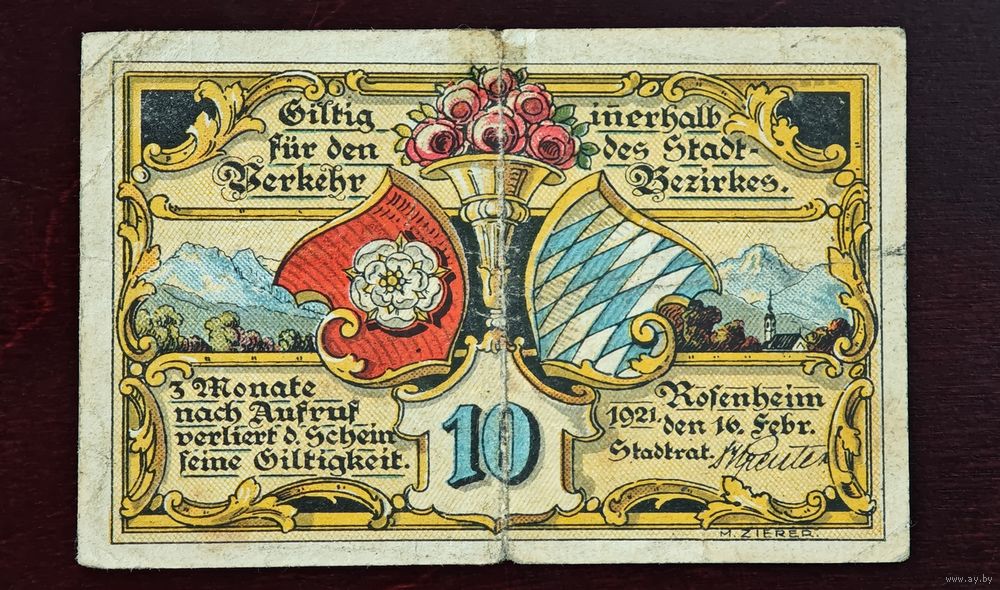 Giltig
für den
Verkehr
innerhalb
des Stadt-
Bezirkes.
3 Monate
nach Aufruf
verliert d. Schein
seine Giltigkeit.
10
Rosenheim
1921. den 16. Febr.
Stadtrat.
M. ZIERER.
www.ay.by